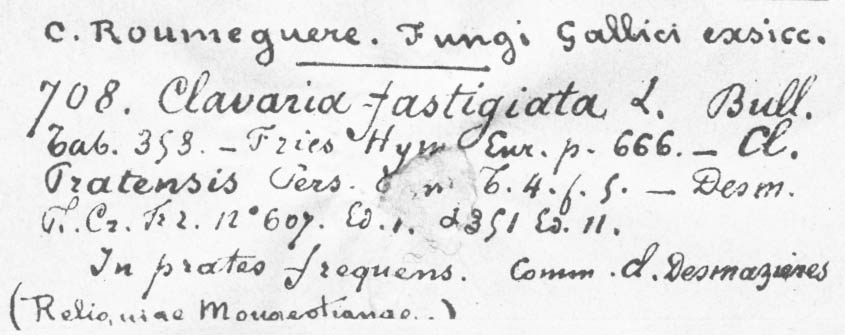 C. Roumeguere. Fungi Gallici exsicc.
708. Clavaria fastigiata L. Bull.
Tab. 358. – Fries Hym Eur. p. 666. – Cl.
Pratensis Pers. T. 4. f. 5. – Desm.
Pl. Cr. Fr. N° 607. Ed. 1. & 351 Ed. 11.
In prates frequens. Comm. cl. Desmazieres
(Reliquiae Mougeotianae.)